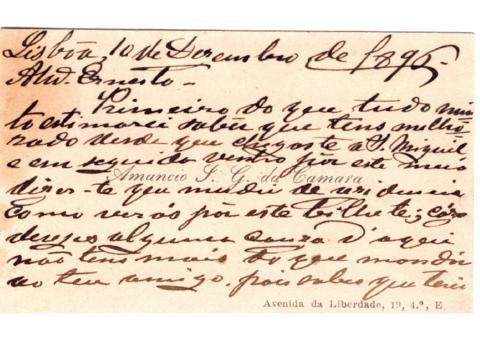 Lisbôa, 10 de Dezembro de 1896.
Am.º Ernesto —
Primeiro do que tudo mui
to estimarei saber que tens melho
rado desde que chegaste a S. Miguel
e em seguida venho por este meio
Amancio S. G. da Camara
dizer-te que mudei de residencia
como verás por este bilhete; caso
desejes alguma couza d'aqui
não tens mais do que mandar
ao teu amigo, pois sabes que tens
Avenida da Liberdade, 19, 4.º, E